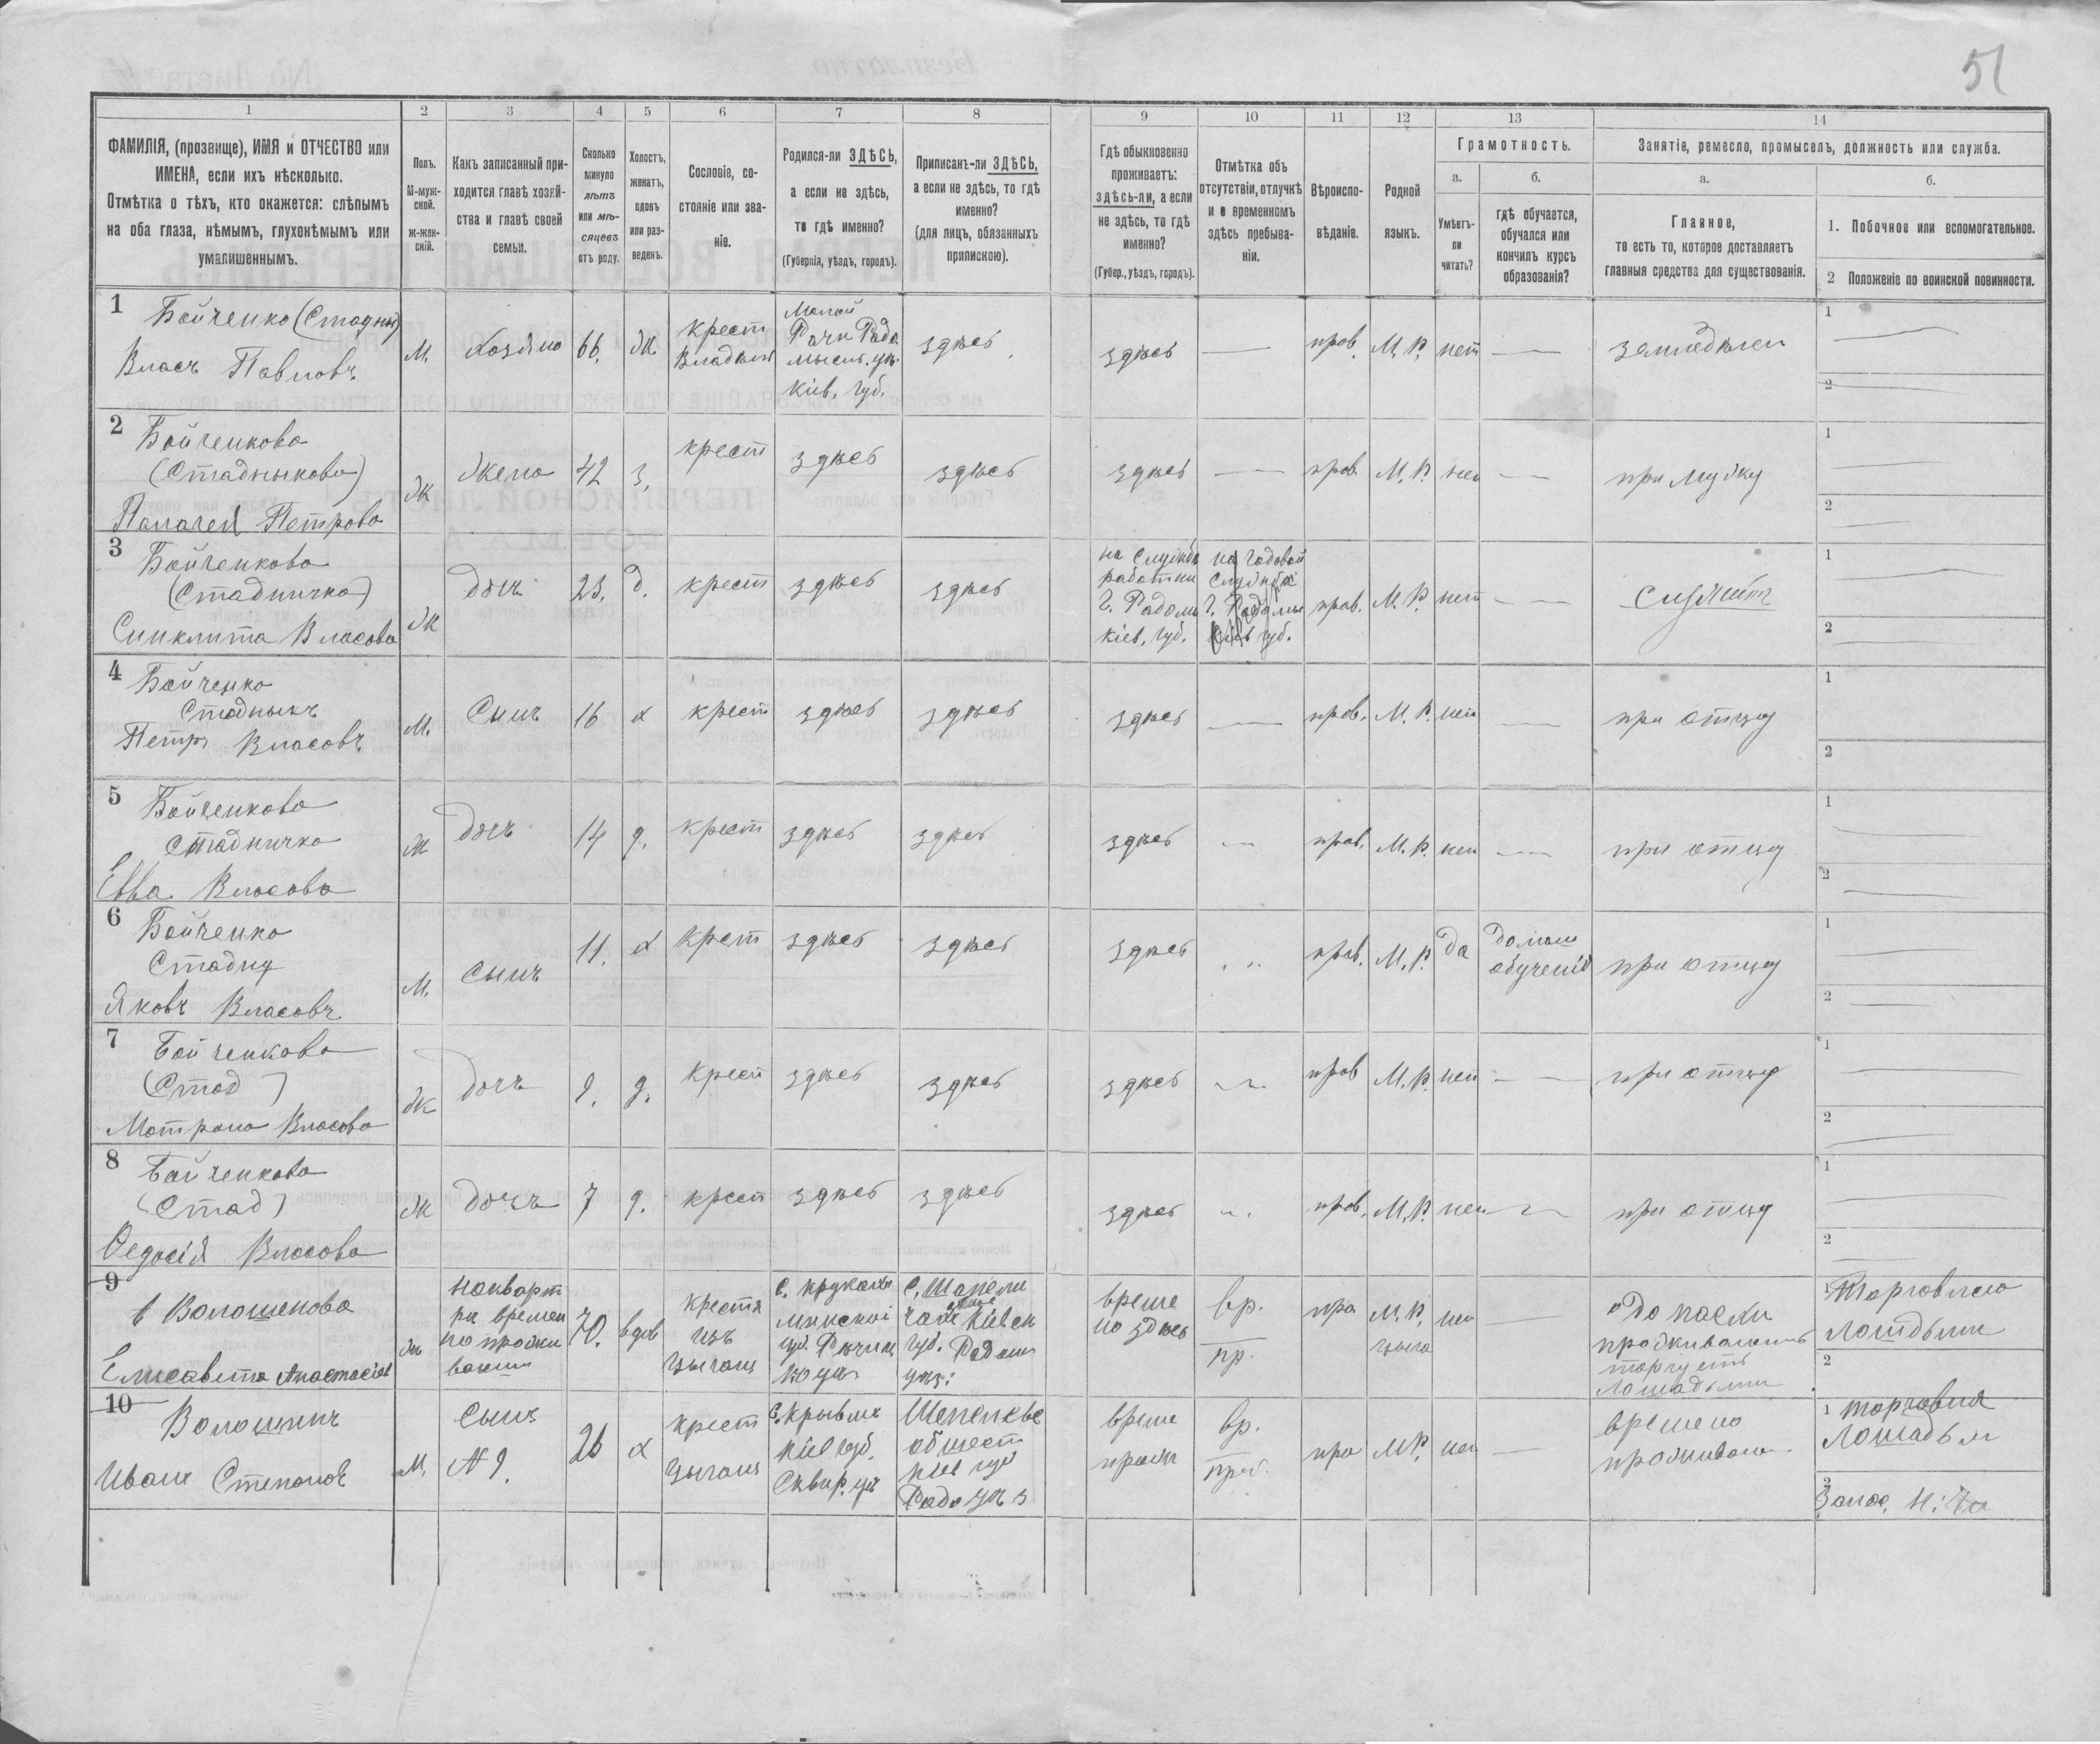 51
1
2
3
4
5
6
7
8
9
10
11
12
13
14
ФАМИЛІЯ, (прозвище), ИМЯ и ОТЧЕСТВО или
ИМЕНА, если ихъ нѣсколько.
Отмѣтка о тѣхъ, кто окажется: слѣпымъ
на оба глаза, нѣмымъ, глухонѣмымъ или
умалишеннымъ.
Полъ.
М-муж-
ской.
ж-жен-
скій.
Какъ записанный при-
ходится главѣ хозяй-
ства и главѣ своей
семьи.
Сколько
минуло
лѣтъ
или мѣ-
сяцевъ
отъ роду.
Холостъ,
женатъ,
вдовъ
или раз-
веденъ.
Сословіе, со-
стояніе или зва-
ніе.
Родился-ли ЗДѢСЬ,
а если не здѣсь,
то гдѣ именно?
(Губернія, уѣздъ, городъ).
Приписанъ-ли ЗДѢСЬ,
а если не здѣсь, то гдѣ
именно?
(для лицъ, обязанныхъ
припискою).
Гдѣ обыкновенно
проживаетъ:
здѣсь-ли, а если
не здѣсь, то гдѣ
именно?
(Губер., уѣздъ, городъ).
Отмѣтка объ
отсутствіи, отлучкѣ
и о временномъ
здѣсь пребыва-
ніи.
Вѣроиспо-
вѣданіе.
Родной
языкъ.
Грамотность.
а.
Умѣетъ-
ли
читать?
б.
гдѣ обучается,
обучался или
кончилъ курсъ
образованія?
Занятіе, ремесло, промыселъ, должность или служба.
а.
Главное,
то есть то, которое доставляетъ
главныя средства для существованія.
б.
1. Побочное или вспомогательное.
2 Положеніе по воинской повинности.
1
Бойченко (Стадны)
Власъ Павловъ
М.
Хозяно
66.
Ж.
крест
Владѣл
Малой
Рачи Радо
мысл. уѣ.
Кіев. губ.
здѣсь
здѣсь
—
прав.
М. Р.
нет
—
земледѣлец
1
2
2
Бойченкова
(Стадныкова)
Палагея Петрова
Ж
Жена
42
з.
крест
здѣсь
здѣсь
здѣсь
—
прав.
М. Р.
нет
—
при мужу
1
2
3
Бойченкова
(Стадничка)
Синклита Власова
Ж
дочь
23.
д.
крест
здѣсь
здѣсь
на службѣ
работни
г. Радом
Кіев. губ.
на годовой
службѣ
г. Радомы
губ.
прав.
М. Р.
нет
—
1
2
4
Бойченко
Стадныкъ
Петръ Власовъ
М.
Сынъ
16
х
крест
здѣсь
здѣсь
здѣсь
—
прав.
М. Р.
нет
—
при отцу
1
2
5
Бойченкова
Стадничка
Евва Власова
Ж
дочь
14
д.
крест
здѣсь
здѣсь
здѣсь
—
прав.
М. Р.
нет
—
при отцу
1
2
6
Бойченко
Стадну
Яковъ Власовъ
М.
Сынъ
11.
х
крест
здѣсь
здѣсь
здѣсь
прав.
М. Р.
да
домаш
обученіе
при отцу
1
2
7
Бойченкова
(Стад)
Мотрона Власова
Ж
дочь
9.
д.
крест
здѣсь
здѣсь
здѣсь
прав
М. Р.
нет
—
при отцу
1
2
8
Бойченкова
(Стад)
Ѳедосія Власова
Ж
дочь
7
д.
крест
здѣсь
здѣсь
здѣсь
прав.
М. Р.
нет
при отцу
1
2
9
Волошенова
Елисавета Анастасіев
Ж
На кварт
ри времен
но прожи
ваетъ
70.
вдов
крестя
изъ
цыганъ
Минской
губ.
Кіевск
губ. Радом
уѣз:
време
но здѣсь
вр.
пр.
пра
М. Р.
цыга
нет
—
до пасхи
проживаетъ
торгуетъ
Лошадьми
Торговлею
Лошадьми
2
10
Волошинъ
Иванъ Степановъ
М.
Сынъ
№ 9.
26
х
крест
Цыганъ
Кіев губ.
Сквир. уѣ
Шепеличе
общест
Кіев губ
Радо уѣз
време
прожи
вр.
преб.
пра
М. Р.
нет
—
временно
проживает
1 торговля
Лошадьм
2
Запас.